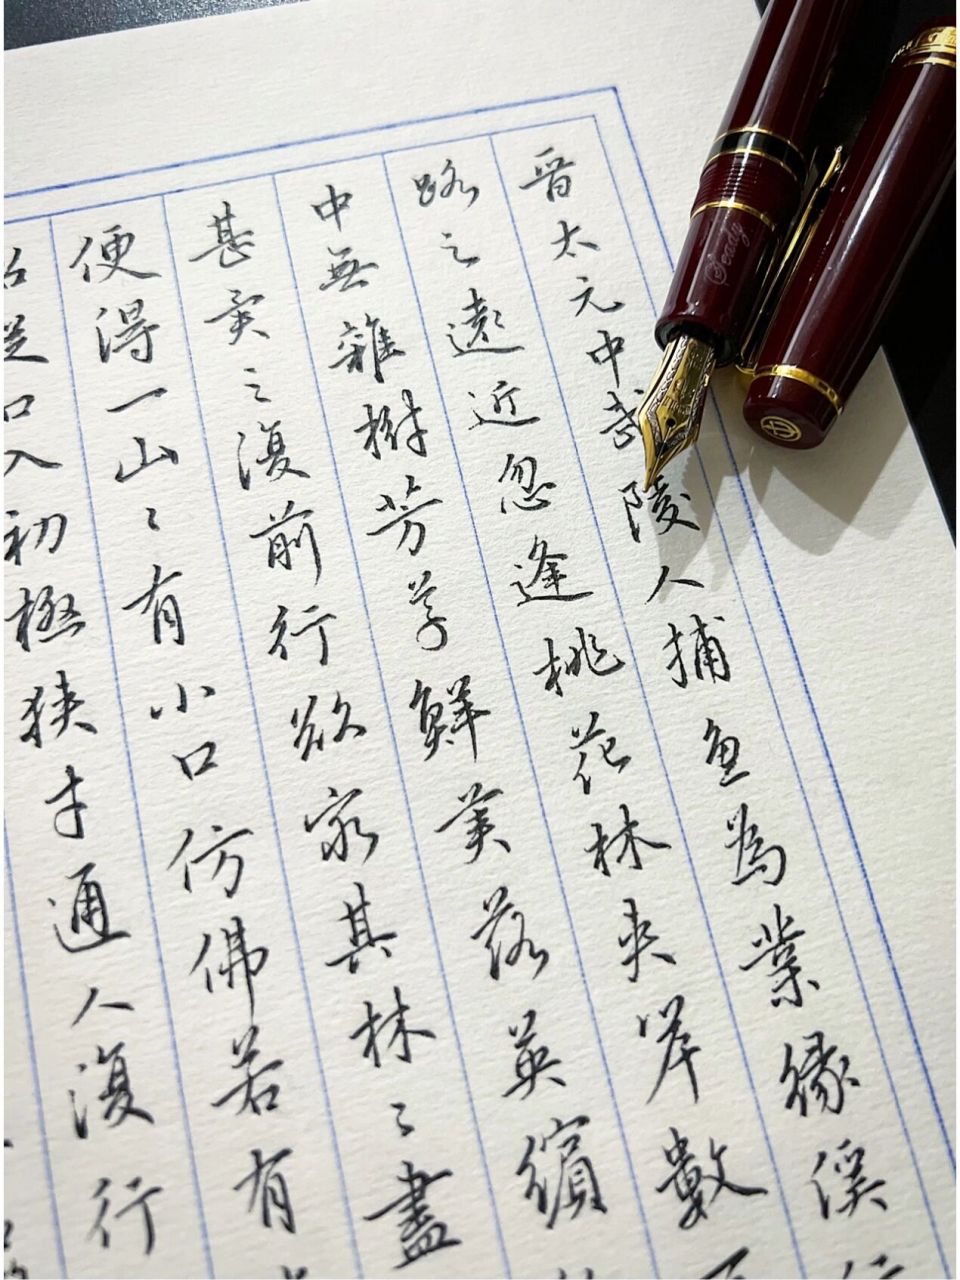 晉太元中武陵人捕魚為業緣溪行
路之遠近忽逢桃花林夾岸數百
中無雜樹芳草鮮美落英繽
甚異之復前行欲窮其林〻盡
便得一山〻有小口仿佛若有
從口入初極狹才通人復行
Sendy